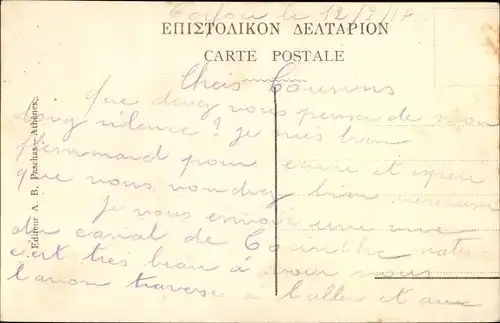 le 12/2/18
ΕΠΙΣΤΟΛΙΚΟΝ ΔΕΛΤΑΡΙΟΝ
CARTE POSTALE
Chers Cousins
Que devez vous penser de mon
long silence? je suis bien
pour écrire et espère
que vous voudrez bien
Je vous envoie une vue
du canal de Corinthe
c'est très beau à voir nous
l'avons traversé à l'aller et aux
Editeur A. B. Paschas-Athènes.